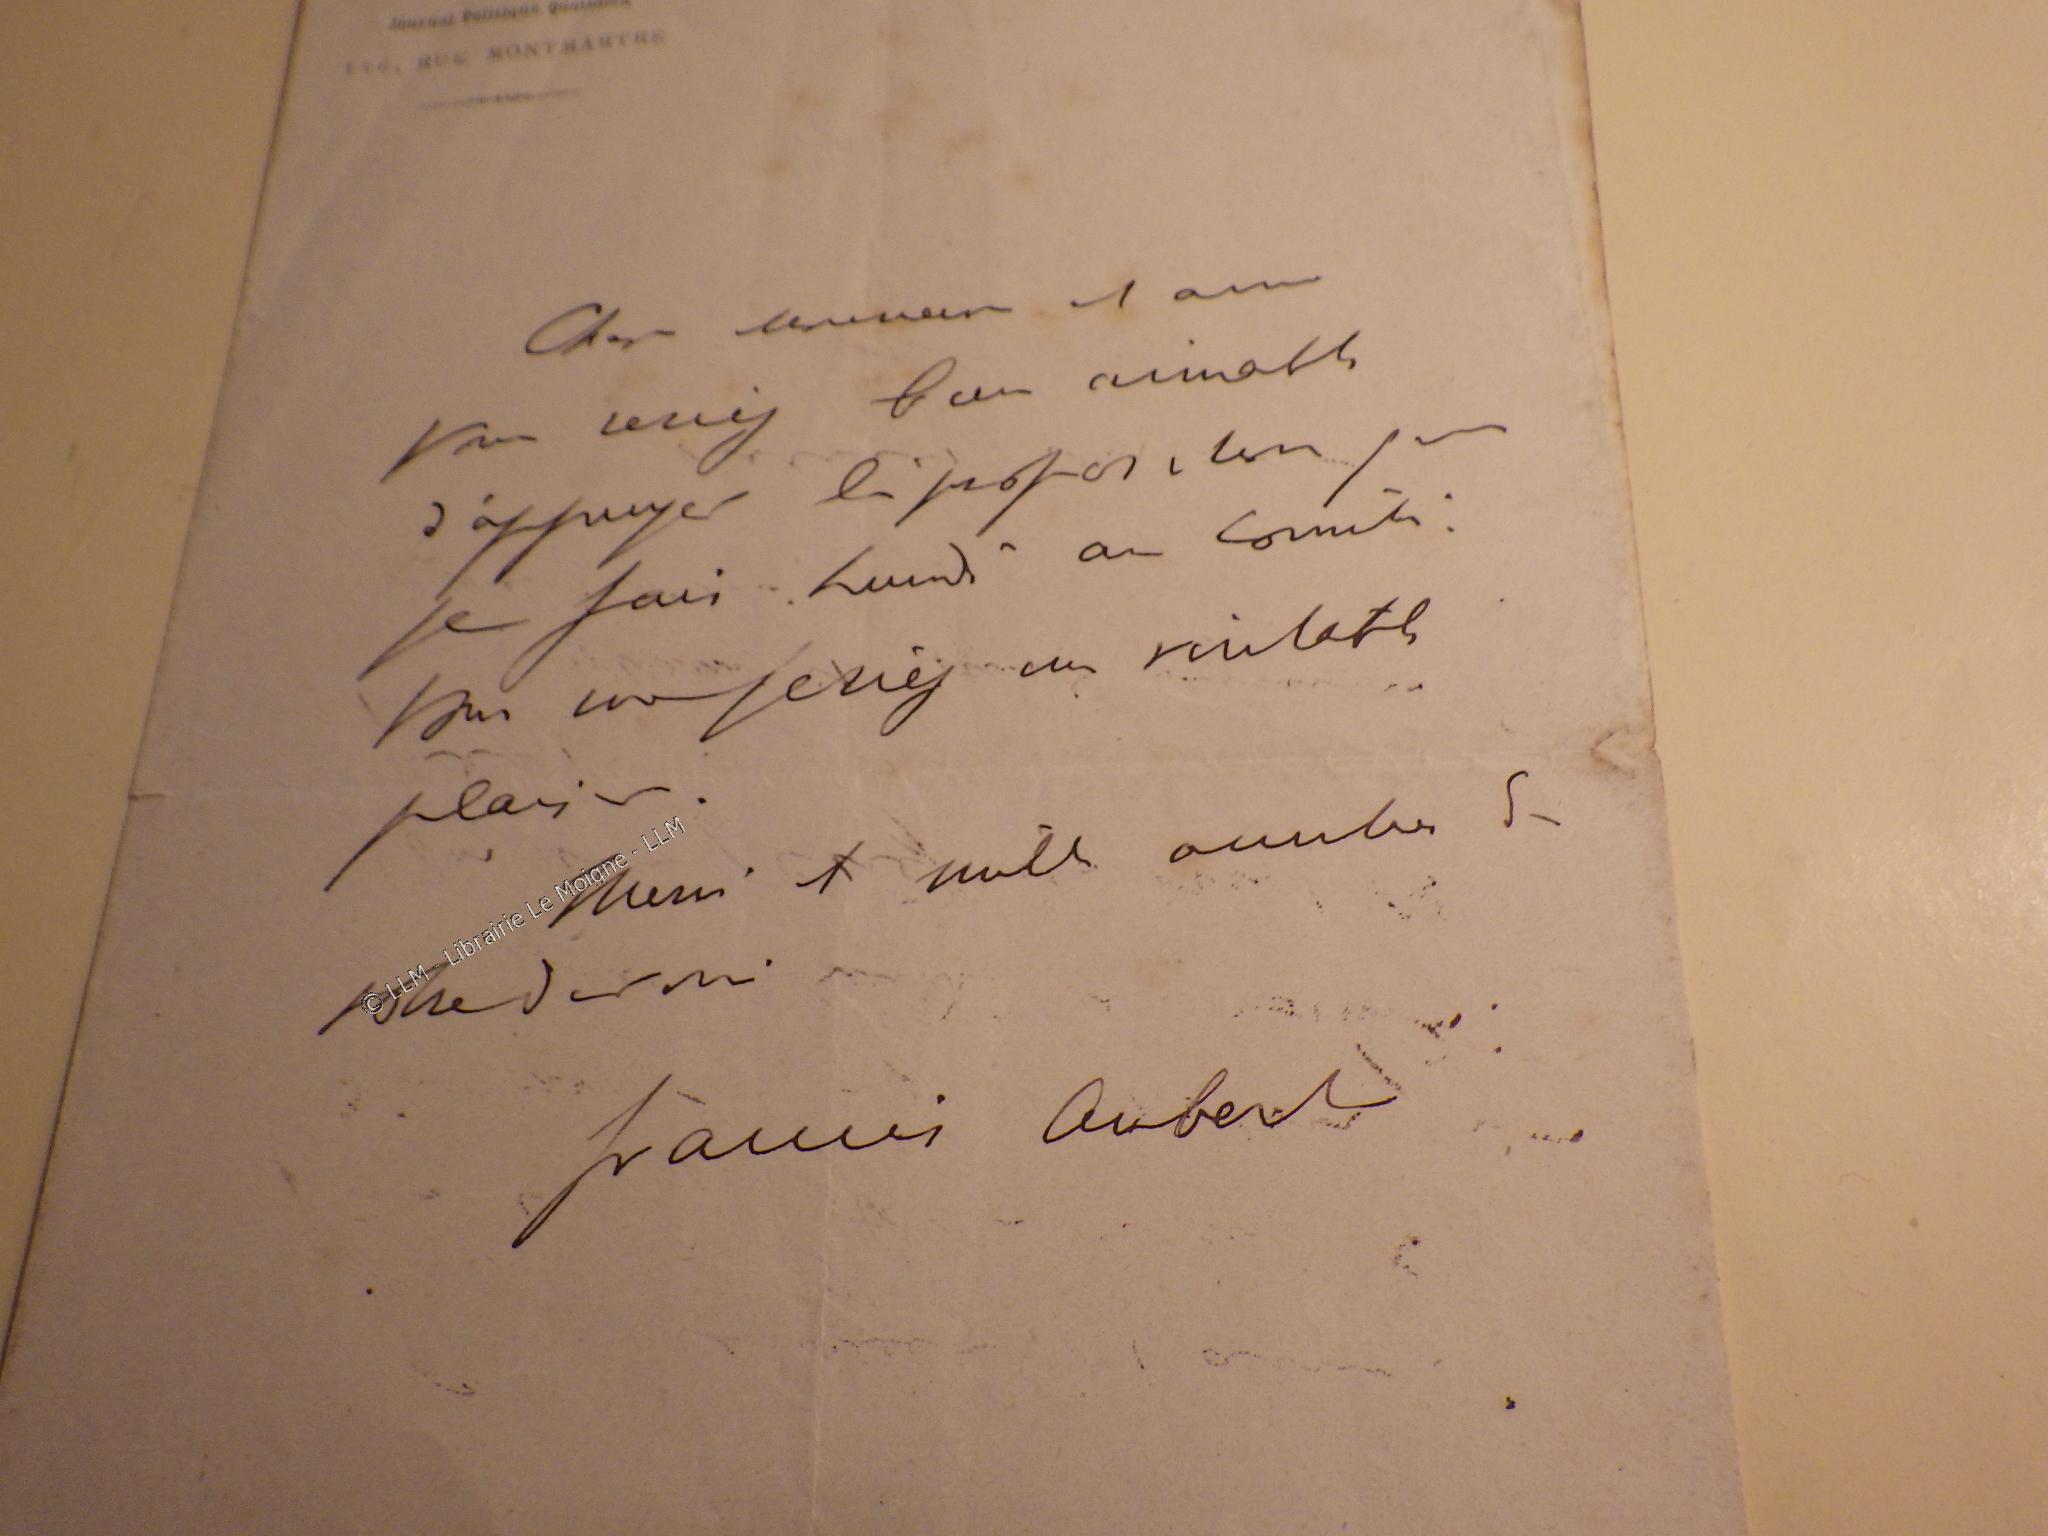 Journal Politique Quotidien
RUE MONTMARTRE
PARIS
Cher monsieur et ami
Vous seriez bien aimable
d'appuyer la proposition que
je fais lundi au comité.
Vous me feriez un véritable
plaisir.
Merci et mille amitiés de
votre dévoué
Francis Aubert
© LLM - Librairie Le Moigne - LLM